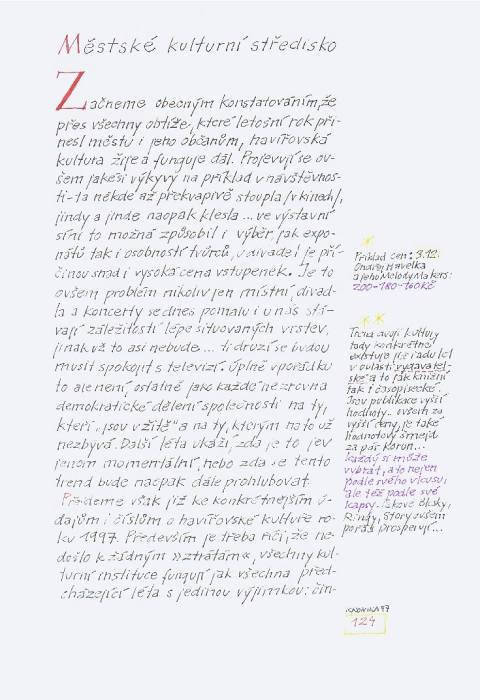 Městské kulturní středisko
Začneme obecným konstatováním, že
přes všechny obtíže, které letošní rok při-
nesl městu i jeho občanům, havířovská
kultura žije a funguje dál. Projevují se ov-
šem jakési výkyvy na příklad v návštěvnos-
ti - ta někde až překvapivě stoupla /v kinech/,
jindy a jinde naopak klesla ... ve výstavní
síni to možná způsobil i výběr jak expo-
nátů tak i osobností tvůrců, v divadel je pří-
činou snad i vysoká cena vstupenek. Je to
ovšem problém nikoliv jen místní, divad-
la a koncerty se dnes pomalu i u nás stá-
vají záležitostí lépe situovaných vrstev,
jinak už to asi nebude ... ti druzí se budou
muset spokojit s televizí. Úplně v pořádku
to ale není, ostatně jako každé nezrovna
demokratické dělení společnosti na ty,
kteří „jsou v žitě" a na ty, kterým na to už
nezbývá. Další léta ukáží, zda je to jev
jenom momentální, nebo zda se tento
trend bude naopak dále prohlubovat.
Přejdeme však již ke konkrétnějším ú-
dajům i číslům o havířovské kultuře ro-
ku 1997. Především je třeba říci, že ne-
došlo k žádným »ztrátám«, všechny kul-
turní instituce fungují jak všechna před-
cházející léta s jedinou výjimkou: čin-
*
Příklad cen: 3.12.
Ondřej Havelka
a jeho Melody Makers:
200-180-160 Kč
**
Trend dvojí kultury
tady konkrétně
existuje již řadu let
v oblasti vydavatel
ské a to jak knižní
tak i časopisecké.
Jsou publikace vyšší
hodnoty.. ovšem za
vyšší ceny, je také
hodnotový šmejd
za pár korun...
každý si může
vybrat, a to nejen
podle svého vkusu,
ale též podle své
kapsy. Takové Blesky,
Rindy, Story ovšem
pořád prosperují...
97
124